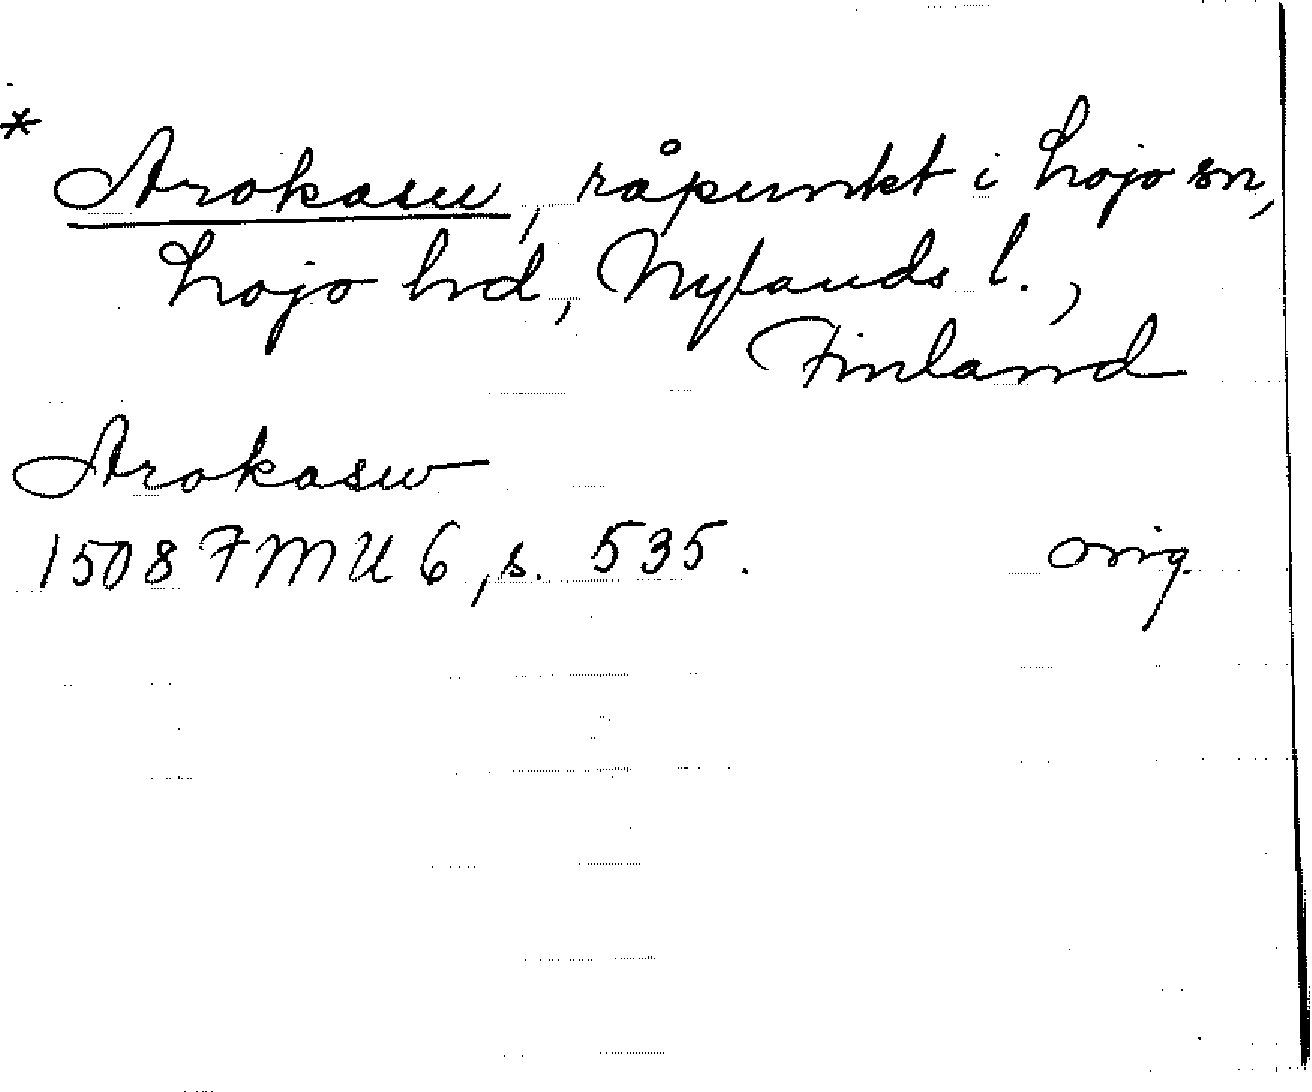 * Arokasu, råpunkt i Lojo sn,
Lojo hd, Nylands l.,
Finland
Arokasw
1508 FMU 6, s. 535. orig.